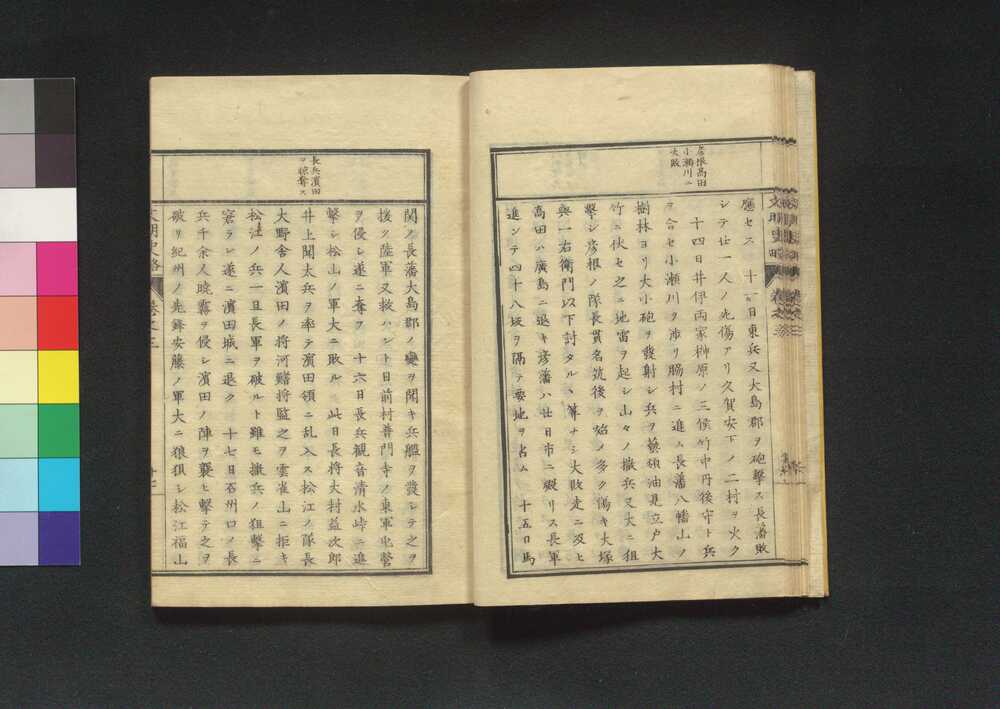 彦根高田
小瀬川ニ
大敗
應セス 十一日東兵又大島郡ヲ砲擊ス長藩敗
シテ廿一人ノ死傷アリ久賀安下ノ二村ヲ火ク
十四日井伊両家榊原ノ三侯竹中丹後守ト兵
ヲ合セ小瀬川ヲ渉リ脇村ニ進ム長藩八幡山ノ
樹林ヨリ大小砲ヲ發射シ兵ヲ藝領油見立戸大
竹ニ伏セ之ニ地雷ヲ起シ山々ノ撒兵又大ニ狙
擊シ彦根ノ隊長貫名筑後ヲ始メ多ク傷キ大塚
與一右衛門以下討タルヽ筆ナシ大敗走ニ及ヒ
高田ハ廣島ニ退キ彦藩ハ廿日市ニ礙リス長軍
進ンテ四十八坂ヲ隔テ要地ヲ占ム 十五日馬
文明史略
長兵濱田
ヲ掠奪ス
関ノ長藩大島郡ノ變ヲ聞キ兵艦ヲ發シテ之ヲ
援ク陸軍又救ハント日前村普門寺ノ東軍屯營
ヲ侵シ遂ニ奪フ 十六日長兵観音清水峠ニ進
擊シ松山ノ軍大ニ敗ル 此日長将大村益次郎
井上聞太兵ヲ率テ濱田領ニ乱入ス松江ノ隊長
大野舎人濱田ノ将河鰭将監之ヲ雲雀山ニ拒キ
松江ノ兵一旦長軍ヲ破ルト雖モ撒兵ノ狙擊ニ
窘ラレ遂ニ濱田城ニ退ク 十七日石州口ノ長
兵千余人暁霧ヲ侵シ濱田ノ陣ヲ襲ヒ擊テ之ヲ
破リ紀州ノ先鋒安藤ノ軍大ニ狼狽シ松江福山
文明史略 巻之三